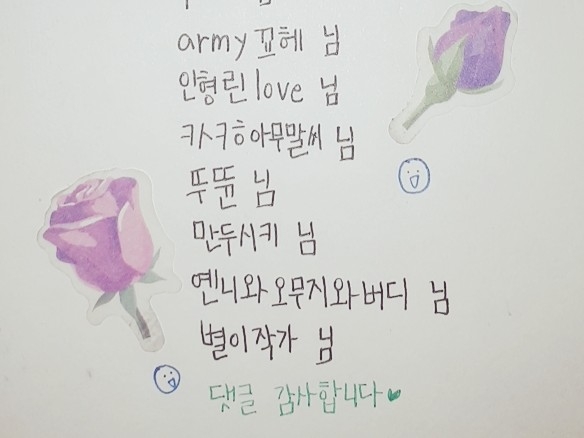 army꾜헤 님
인형린love 님
캬ㅅㅋㅎ아무말씨 님
뚜뜐 님
만두시키 님
옌니와오무지와버디 님
별이작가 님
댓글 감사합니다♥